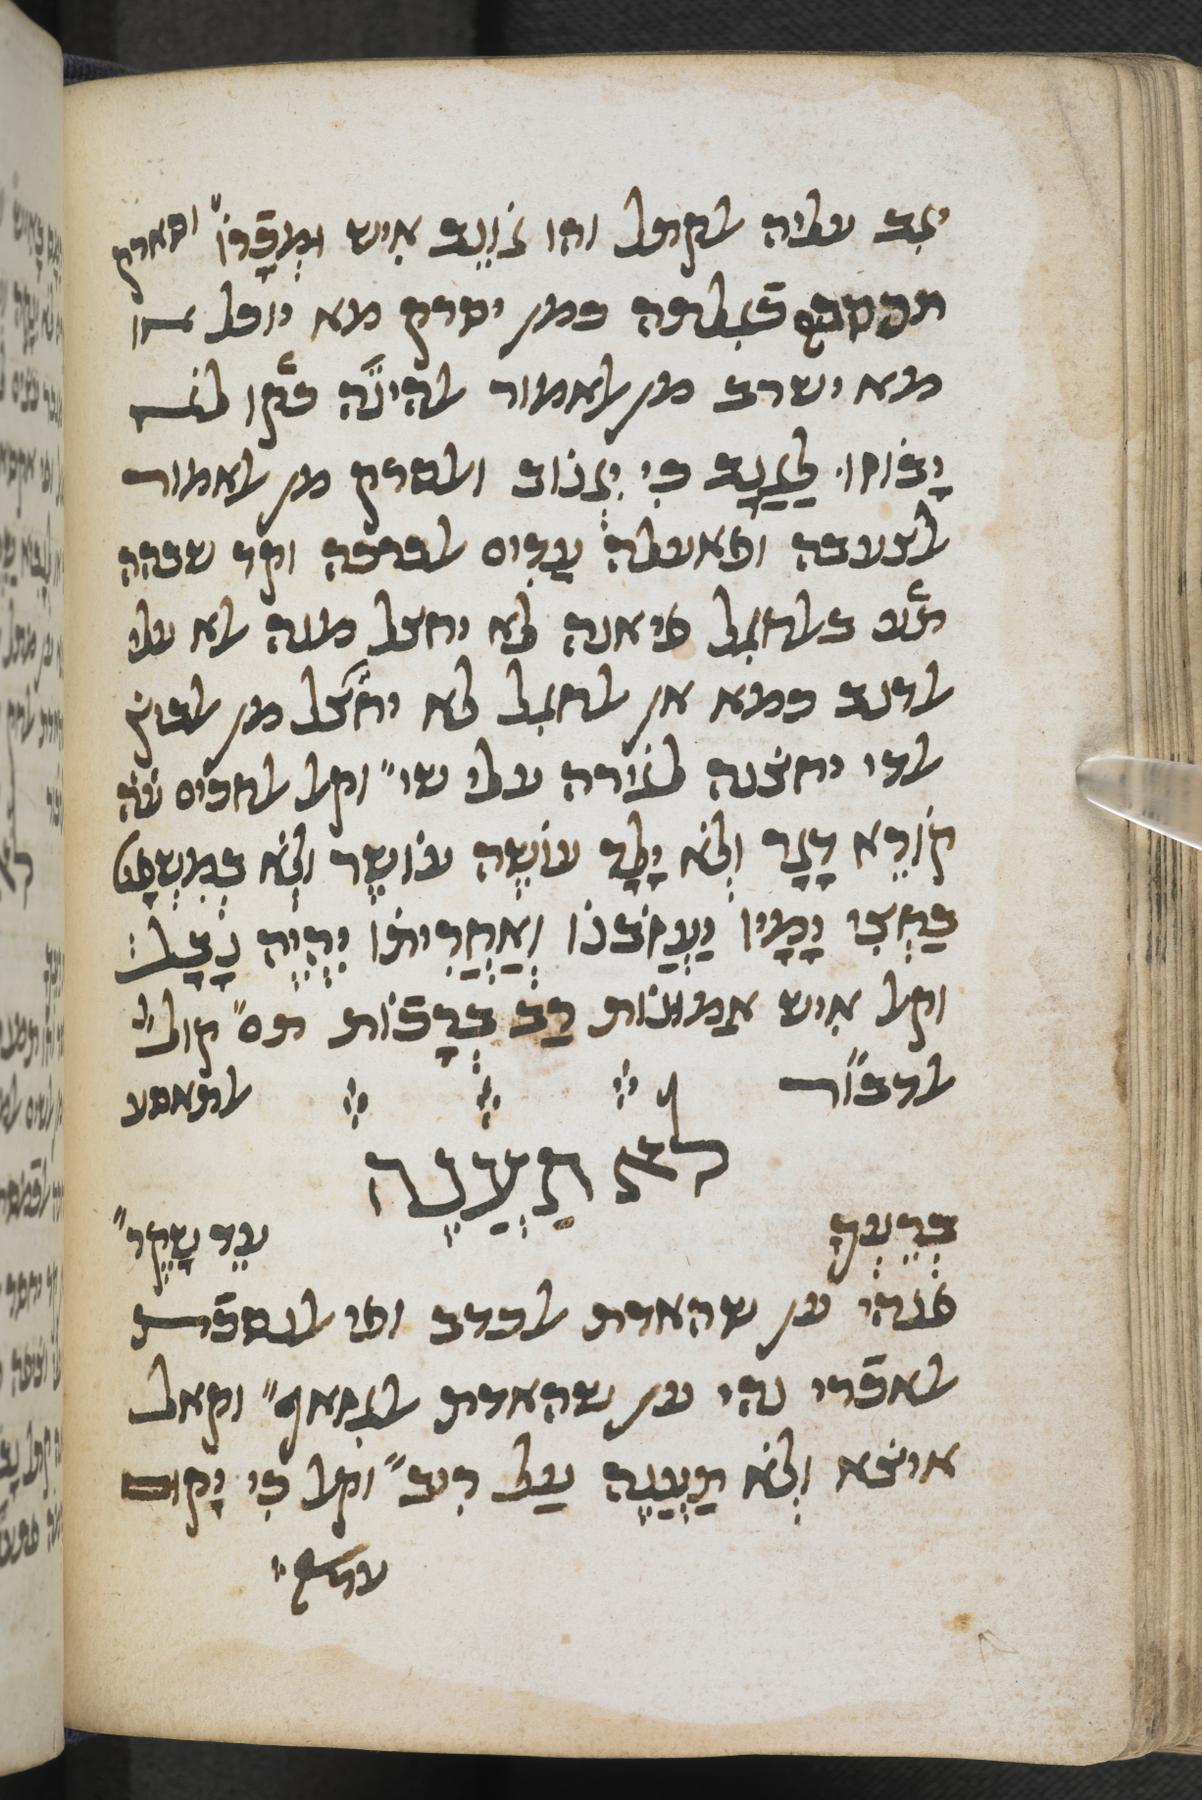 יגב עליה לקתל והו גֹוֵנֵב אִיש וּמְכָרוֹ״ וסארק
תכסבה כגלתה כמן יסרק מא יוכל או
מא ישרב מן לאמור להינֹה פקו לנ
יָבוֹזוּ לַגַנָב כִי יִגְנוֹב ולסרק מן לאמור
לצעבה ופאעלה עַדִים לברכה וקד שבהה
תֹע בלחגל פי אנה לא יחצל מנה לא עלי
לדנב כמא אן לחגל לא יחצֹל מן לביץ
לדי יחצֹנה לגֹירה עלי שי״ וקל לחכים עֹה
קוֹרֵא דָגַר וְלֹא יָלָד עוֹשֶה עוֹשֶר וְלֹא בְמִשְפָט
בַחְצִי יָמָיו יַעַזְבֶנוּ וְאַחֲרִיתוֹ יִהְיֶה נָבָל׃
וקל אִיש אֱמוּנוֹת רַב בְרָכוֹת תם״ קול״
לדבור לתאסע
לֹא תַעֲנֶה
בְרֵעֲךָ עֵד שָקֶר״
פנהי ען שהאדת לכדב ופי לנסכֹת
לאכֹרי נהי ען שהאדת לגזאף״ וקאל
איצֹא וְלֹא תַעֲנֶה עַל רִיב״ וקל כִי יָקוּם
עד״